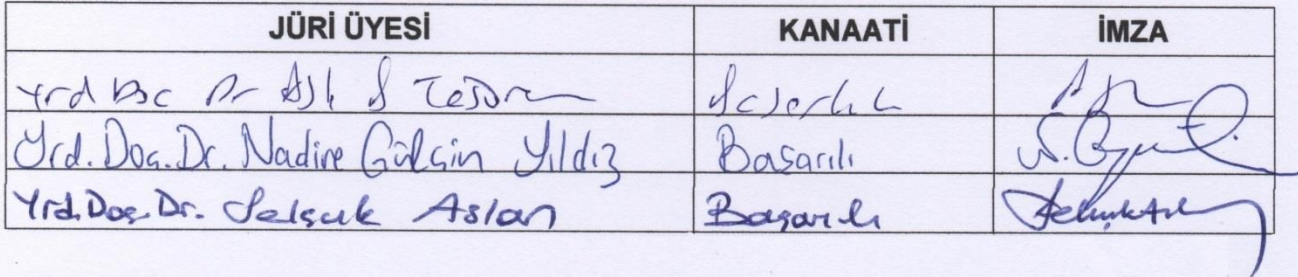 JÜRİ ÜYESİ KANAATİ İMZA
Yrd Doç Dr Aslı
Yrd. Doç. Dr. Nadire Gülçin Yıldız Başarılı
Yrd. Doç. Dr. Selçuk Aslan Başarılı